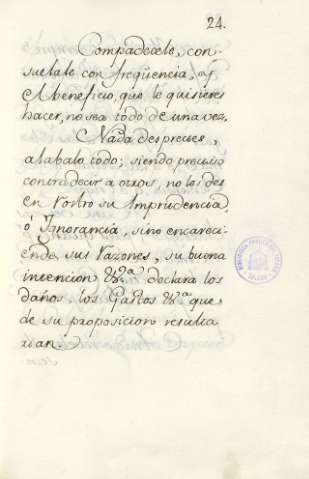 24.
Compadecele, con-
suelale con freqüencia, y
el beneficio, que le quisieres
hacer, no sea todo de una vez.
Nada desprecies,
alabalo todo; siendo preciso
contradecir a otros, no les des
en rostro su Imprudencia,
ó Ignorancia, sino encareci-
endo, sus razones, su buena
intencion &.ª declara los
daños, los Gastos &.ª que
de su proposicion resulta
rian.